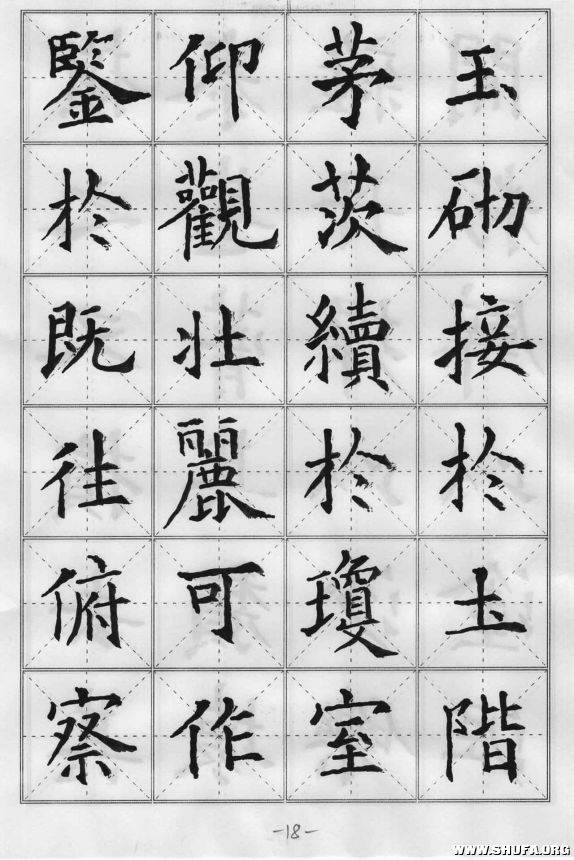 玉砌接於土階
茅茨續於瓊室
仰觀壮麗可作
鑒於既往俯察
-18-
WWW.SHUFA.ORG